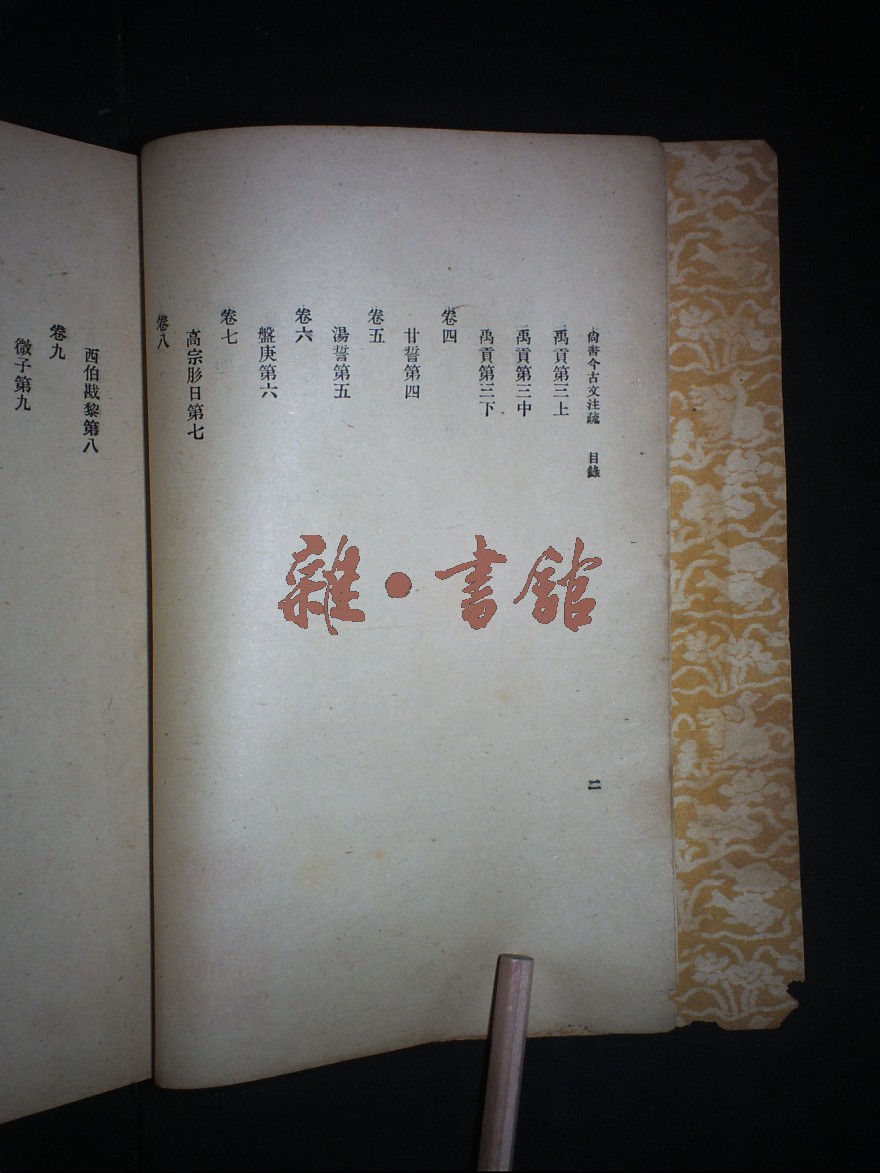 尙書今古文注疏 目錄
二
禹貢第三上
禹貢第三中
禹貢第三下
卷四
甘誓第四
卷五
湯誓第五
卷六
盤庚第六
卷七
高宗肜日第七
卷八
西伯戡黎第八
卷九
微子第九
雜·書館